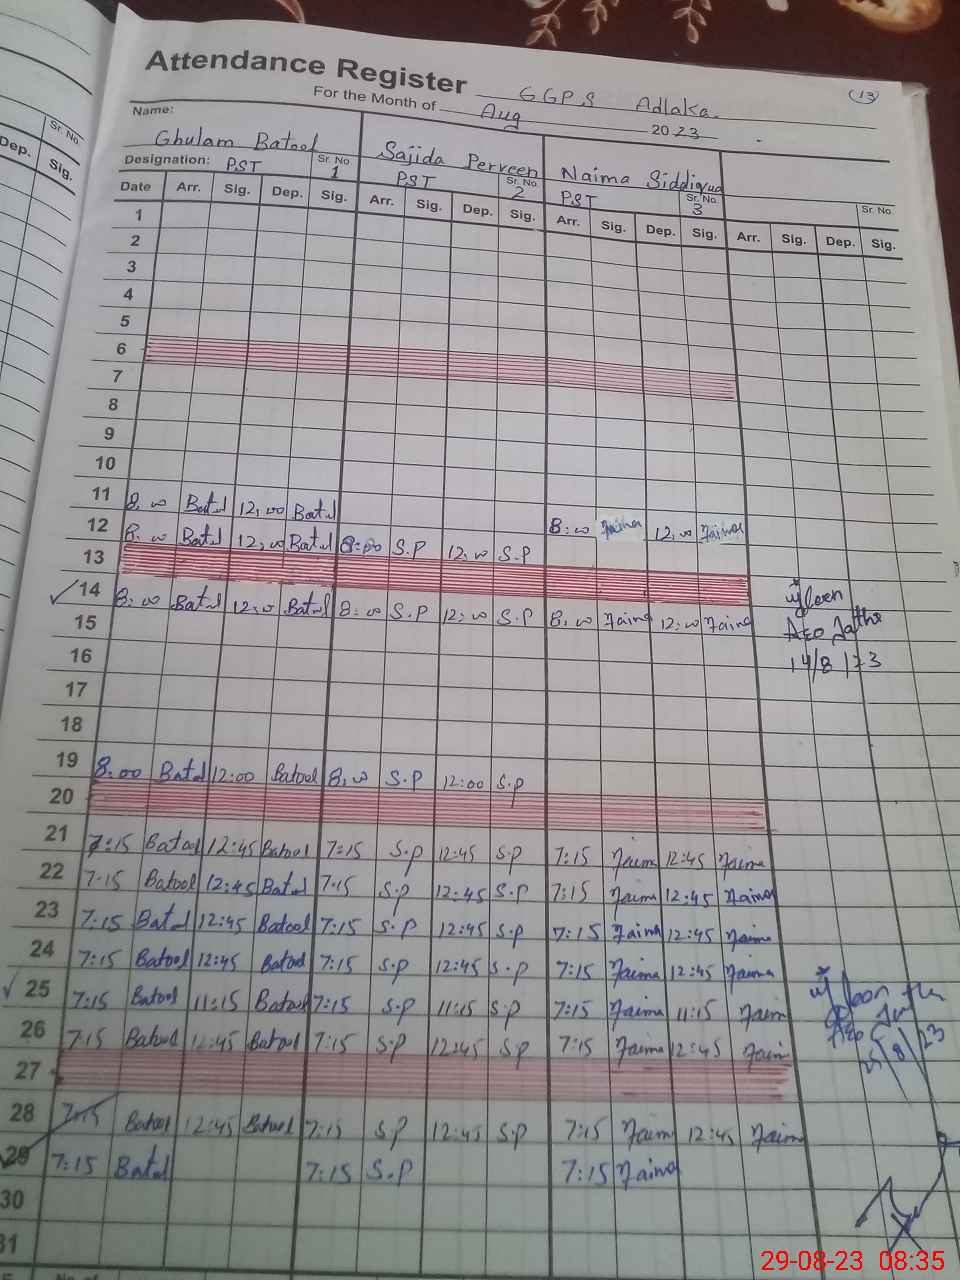 Attendance Register GGPS Adlaka. (13)
For the Month of Aug 2023
Name:
Ghulam Batool Sajida Perveen Naima Siddiqua
Designation: PST Sr. No. 1 PST Sr. No. 2 PST Sr. No. 3 Sr. No.
Date Arr. Sig. Dep. Sig. Arr. Sig. Dep. Sig. Arr. Sig. Dep. Sig. Arr. Sig. Dep. Sig.
Dep. Sig. Sr. No.
1
2
3
4
5
6
7
8
9
10
11 8:00 Batool 12:00 Batool
12 8:00 Batool 12:00 Batool 8:00 S.P 12:00 S.P 8:00 Naima 12:00 Naima
13
14 8:00 Batool 12:00 Batool 8:00 S.P 12:00 S.P 8:00 Naima 12:00 Naima
AEO
14/8/23
15
16
17
18
19 8:00 Batool 12:00 Batool 8:00 S.P 12:00 S.P
20
21 7:15 Batool 12:45 Batool 7:15 S.P 12:45 S.P 7:15 Naima 12:45 Naima
22 7:15 Batool 12:45 Batool 7:15 S.P 12:45 S.P 7:15 Naima 12:45 Naima
23 7:15 Batool 12:45 Batool 7:15 S.P 12:45 S.P 7:15 Naima 12:45 Naima
24 7:15 Batool 12:45 Batool 7:15 S.P 12:45 S.P 7:15 Naima 12:45 Naima
25 7:15 Batool 11:15 Batool 7:15 S.P 11:15 S.P 7:15 Naima 11:15 Naima
AEO
25/8/23
26 7:15 Batool 12:45 Batool 7:15 S.P 12:45 S.P 7:15 Naima 12:45 Naima
27
28 7:15 Batool 12:45 Batool 7:15 S.P 12:45 S.P 7:15 Naima 12:45 Naima
29 7:15 Batool 7:15 S.P 7:15 Naima
30
31
29-08-23 08:35